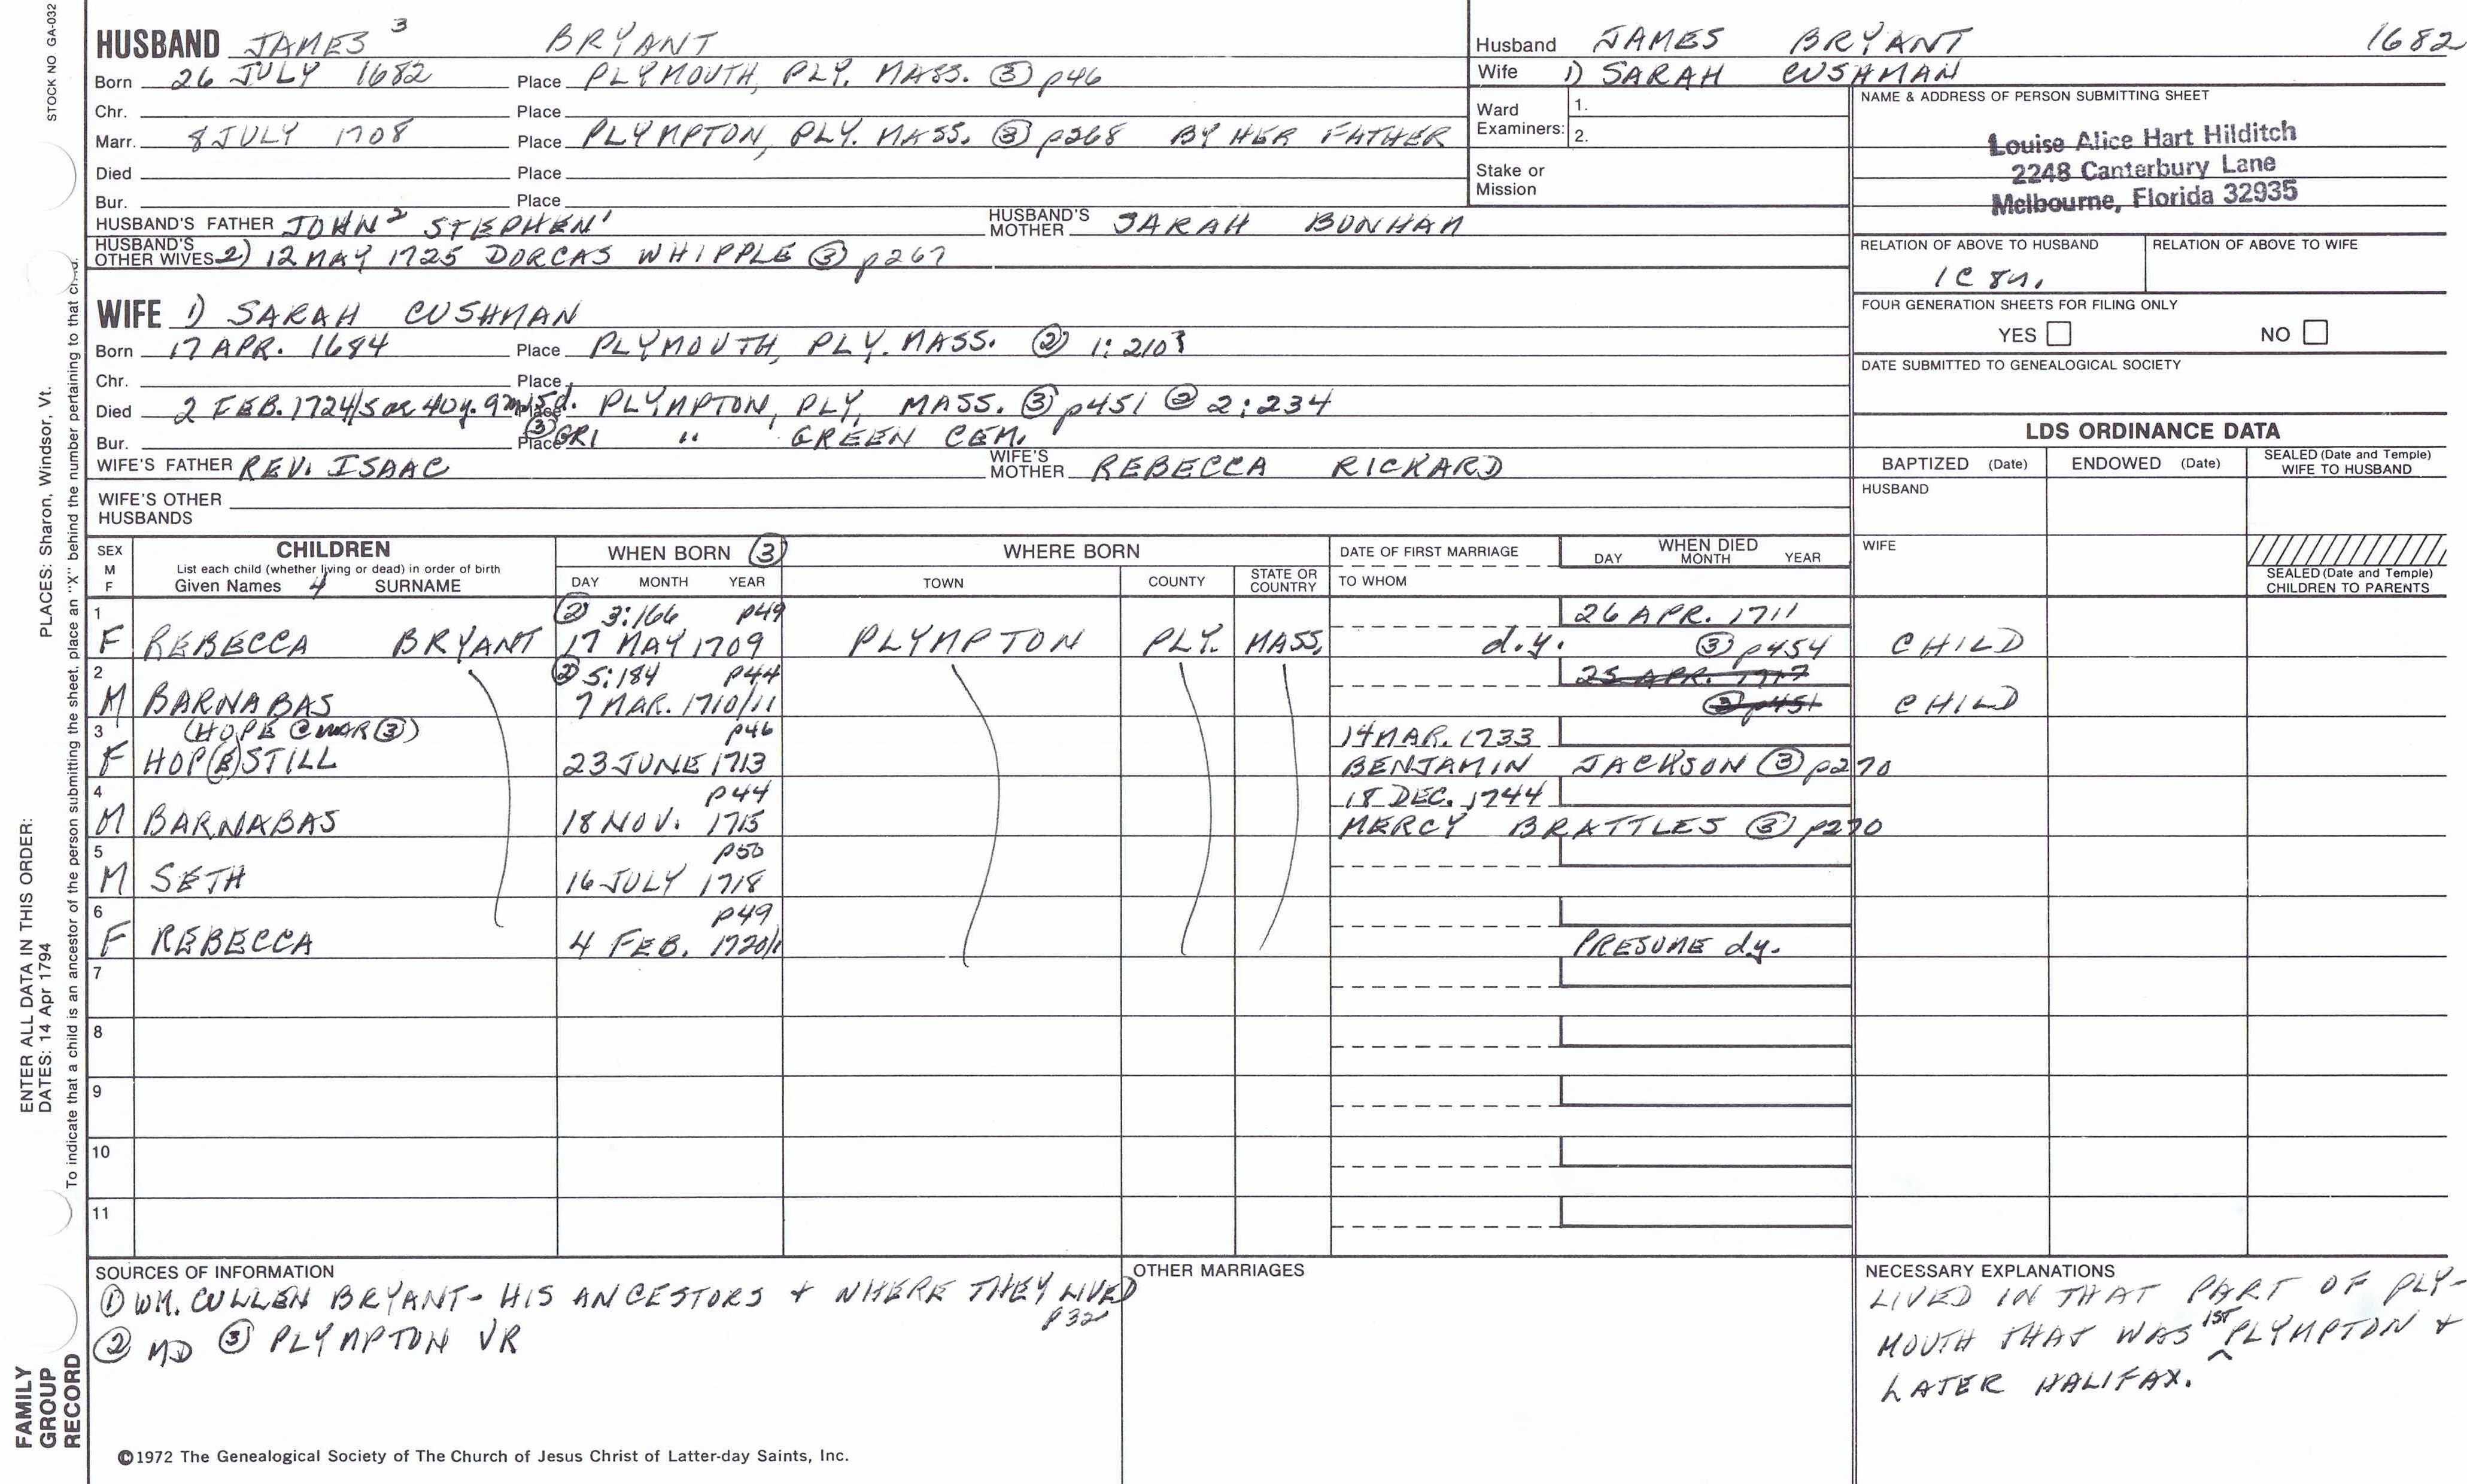 STOCK NO GA-032
PLACES: Sharon, Windsor, Vt.
ENTER ALL DATA IN THIS ORDER:
DATES: 14 Apr 1794
To indicate that a child is an ancestor of the person submitting the sheet, place an "X" behind the number pertaining to that child.
FAMILY
GROUP
RECORD
HUSBAND JAMES 3 BRYANT
Born 26 JULY 1682 Place PLYMOUTH, PLY. MASS. ③ p46
Chr. Place
Marr. 8 JULY 1708 Place PLYMPTON, PLY. MASS. ③ p268 BY HER FATHER
Died Place
Bur. Place
HUSBAND'S FATHER JOHN 2 STEPHEN 1 HUSBAND'S MOTHER SARAH BONHAM
HUSBAND'S OTHER WIVES 2) 12 MAY 1725 DORCAS WHIPPLE ③ p267
WIFE 1) SARAH CUSHMAN
Born 17 APR. 1684 Place PLYMOUTH, PLY. MASS. ② 1:210
Chr. Place
Died 2 FEB. 1724/5 ae 40y. 9m 15d. Place PLYMPTON, PLY, MASS. ③ p451 ② 2:234
Bur. Place ③ GR1 " GREEN CEM.
WIFE'S FATHER REV. ISAAC WIFE'S MOTHER REBECCA RICKARD
WIFE'S OTHER
HUSBANDS
Husband JAMES BRYANT 1682
Wife 1) SARAH CUSHMAN
Ward Examiners: 1.
2.
Stake or Mission
NAME & ADDRESS OF PERSON SUBMITTING SHEET
Louise Alice Hart Hilditch
2248 Canterbury Lane
Melbourne, Florida 32935
RELATION OF ABOVE TO HUSBAND RELATION OF ABOVE TO WIFE
1C 8r.
FOUR GENERATION SHEETS FOR FILING ONLY
YES NO
DATE SUBMITTED TO GENEALOGICAL SOCIETY
LDS ORDINANCE DATA
BAPTIZED (Date) ENDOWED (Date) SEALED (Date and Temple) WIFE TO HUSBAND
HUSBAND
WIFE
SEALED (Date and Temple) CHILDREN TO PARENTS
SEX M F CHILDREN WHEN BORN ③ WHERE BORN DATE OF FIRST MARRIAGE WHEN DIED
List each child (whether living or dead) in order of birth
Given Names 4 SURNAME DAY MONTH YEAR TOWN COUNTY STATE OR COUNTRY TO WHOM DAY MONTH YEAR
1 ② 3:166 p49 26 APR. 1711
F REBECCA BRYANT 17 MAY 1709 PLYMPTON PLY. MASS. d.y. ③ p454 CHILD
2 ② 5:184 p44 25 APR. 1717
M BARNABAS 7 MAR. 1710/11 ③ p451 CHILD
3 (HOPE @ MAR ③) p46 14 MAR. 1733
F HOP(E)STILL 23 JUNE 1713 BENJAMIN JACKSON ③ p270
4 p44 18 DEC. 1744
M BARNABAS 18 NOV. 1715 MERCY BRATTLES ③ p270
5 p50
M SETH 16 JULY 1718
6 p49
F REBECCA 4 FEB. 1720/1 PRESUME d.y.
7
8
9
10
11
SOURCES OF INFORMATION
① WM. CULLEN BRYANT - HIS ANCESTORS + WHERE THEY LIVED
p32
② MD ③ PLYMPTON VR
OTHER MARRIAGES
NECESSARY EXPLANATIONS
LIVED IN THAT PART OF PLY-
MOUTH THAT WAS 1ST PLYMPTON +
LATER HALIFAX.
©1972 The Genealogical Society of The Church of Jesus Christ of Latter-day Saints, Inc.